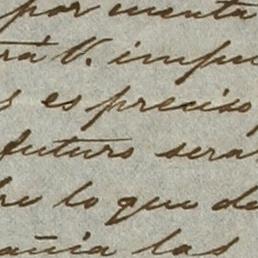 por cuenta
rá V. impu
s es preciso
futuro sera
re lo que de
añia las